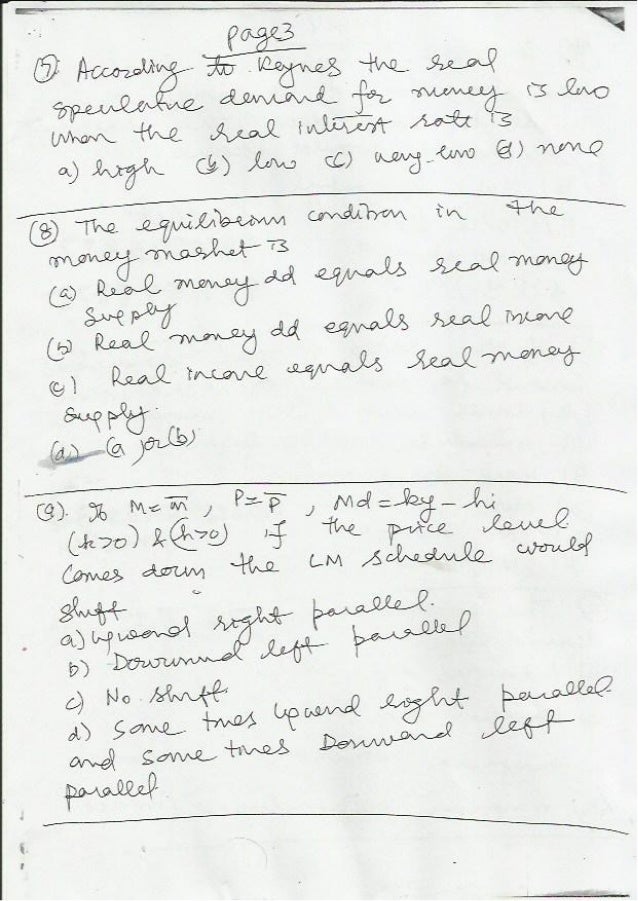 page3
(7) According to Keynes the real
speculative demand for money is low
when the real interest rate is
a) high (b) low (c) very low (d) none
(8) The equilibrium condition in the
money market is
(a) Real money dd equals real money
supply
(b) Real money dd equals real income
(c) Real income equals real money
supply.
(d) (a) or (b)
(9). If M = m̅, P = P̅, Md = ky - hi
(k>0) & (h>0) if the price level
comes down the LM schedule would
shift
a) upward right parallel.
b) Downward left parallel
c) No shift
d) Some times upward right parallel
and some times Downward left
parallel